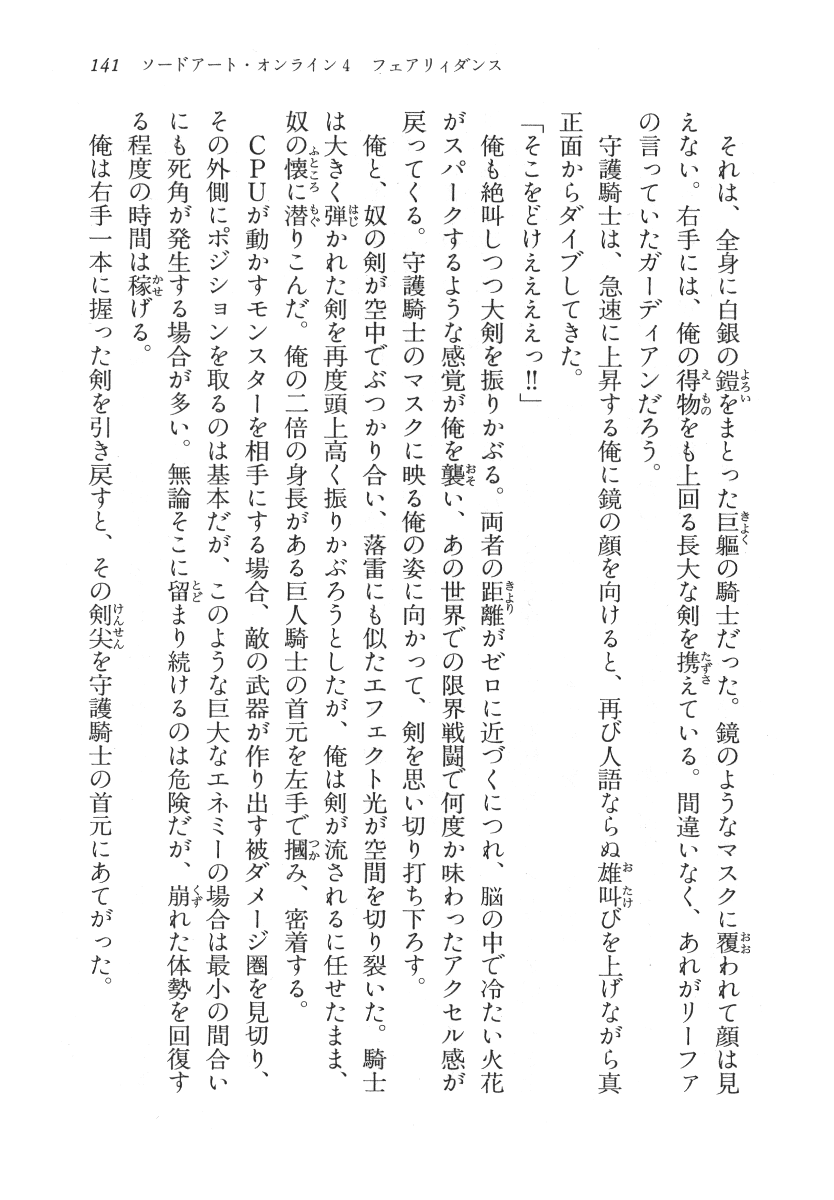 141　ソードアート・オンライン4　フェアリィダンス
　それは、全身に白銀の鎧をまとった巨軀の騎士だった。鏡のようなマスクに覆われて顔は見
えない。右手には、俺の得物をも上回る長大な剣を携えている。間違いなく、あれがリーファ
の言っていたガーディアンだろう。
　守護騎士は、急速に上昇する俺に鏡の顔を向けると、再び人語ならぬ雄叫びを上げながら真
正面からダイブしてきた。
「そこをどけええええっ!!」
　俺も絶叫しつつ大剣を振りかぶる。両者の距離がゼロに近づくにつれ、脳の中で冷たい火花
がスパークするような感覚が俺を襲い、あの世界での限界戦闘で何度か味わったアクセル感が
戻ってくる。守護騎士のマスクに映る俺の姿に向かって、剣を思い切り打ち下ろす。
　俺と、奴の剣が空中でぶつかり合い、落雷にも似たエフェクト光が空間を切り裂いた。騎士
は大きく弾かれた剣を再度頭上高く振りかぶろうとしたが、俺は剣が流されるに任せたまま、
奴の懐に潜りこんだ。俺の二倍の身長がある巨人騎士の首元を左手で摑み、密着する。
　ＣＰＵが動かすモンスターを相手にする場合、敵の武器が作り出す被ダメージ圏を見切り、
その外側にポジションを取るのは基本だが、このような巨大なエネミーの場合は最小の間合い
にも死角が発生する場合が多い。無論そこに留まり続けるのは危険だが、崩れた体勢を回復す
る程度の時間は稼げる。
　俺は右手一本に握った剣を引き戻すと、その剣尖を守護騎士の首元にあてがった。